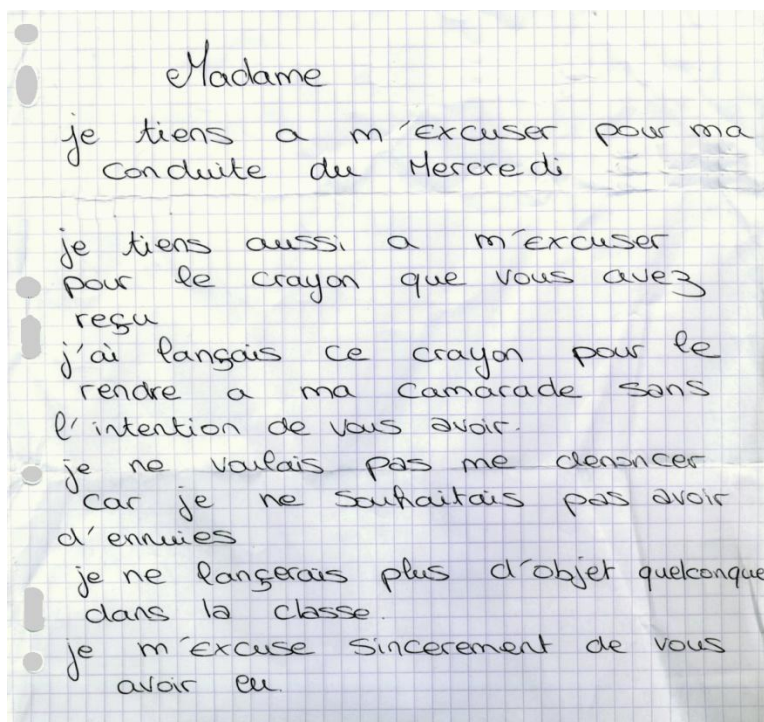 Madame
je tiens a m'excuser pour ma
conduite du Mercredi
je tiens aussi a m'excuser
pour le crayon que vous avez
reçu
j'ai lançais ce crayon pour le
rendre a ma camarade sans
l'intention de vous avoir.
je ne voulais pas me denoncer
car je ne souhaitais pas avoir
d'ennuies
je ne lançerais plus d'objet quelconque
dans la classe.
je m'excuse sincerement de vous
avoir eu.